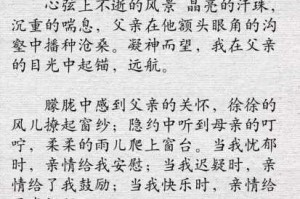 心弦上不逝的风景 晶亮的汗珠,
沉重的喘息,父亲在他额头眼角的沟
壑中播种沧桑。凝神而望,我在父亲
的目光中起锚,远航。
朦胧中感到父亲的关怀,徐徐的
风儿撩起窗纱;隐约中听到母亲的叮
咛,柔柔的雨儿爬上窗台。当我忧郁
时,亲情给我安慰;当我迟疑时,亲
情给了我鼓励;当我快乐时,亲情给